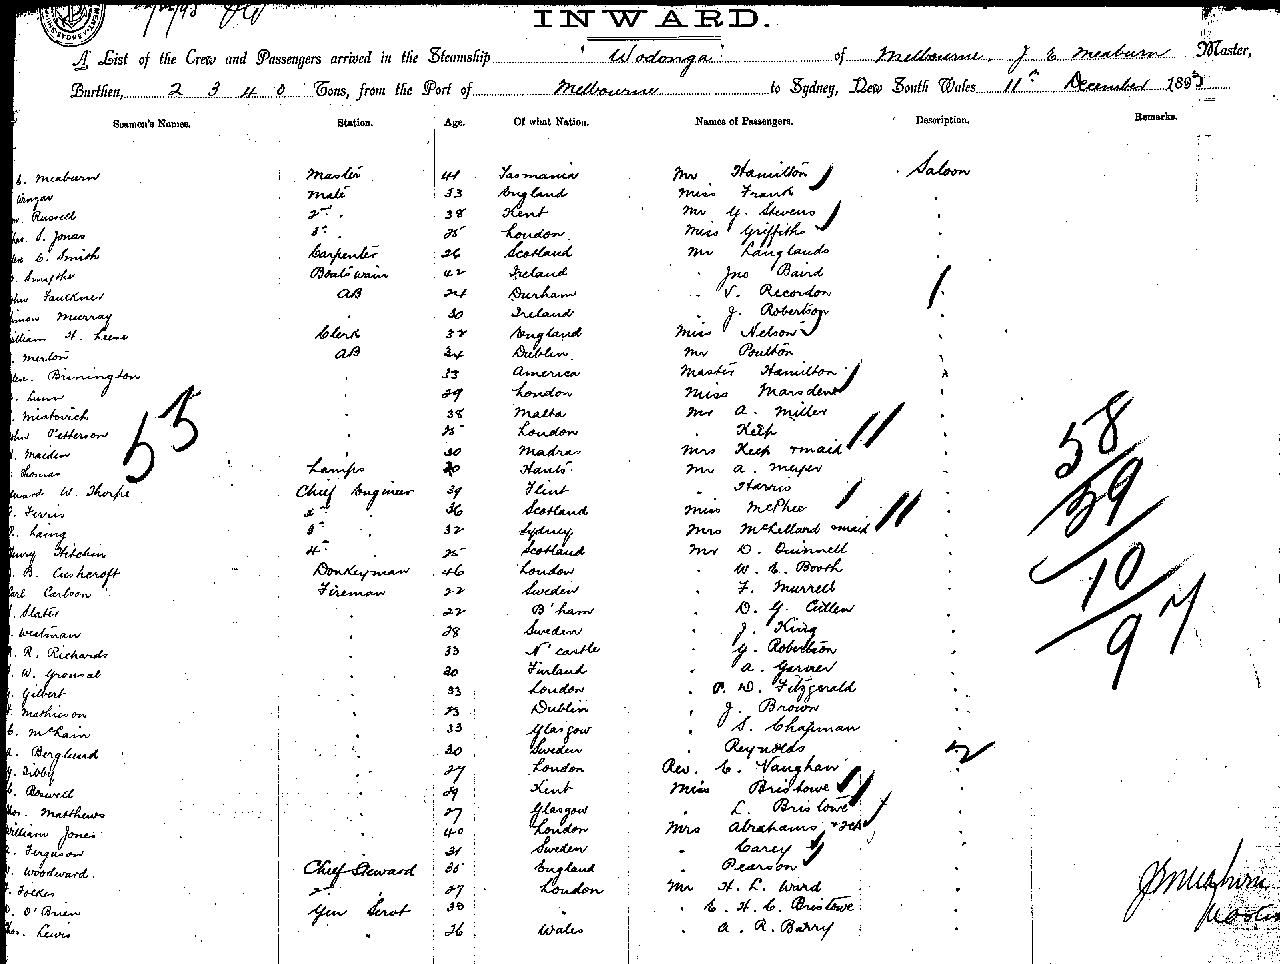 INWARD.
A List of the Crew and Passengers arrived in the Steamship "Wodonga" of Melbourne, J E Meaburn Master,
Burthen, 2340 Tons, from the Port of Melbourne to Sydney, New South Wales 11th December 189
Seamen's Names. Station. Age. Of what Nation. Names of Passengers. Description. Remarks.
E. Meaburn Master 41 Tasmania Mr Hamilton Saloon
Mate 33 England Miss Frank
Russell 2nd . 38 Kent Mr G. Stevens
S. Jonas 3rd . 25 London Miss Griffiths
C. Smith Carpenter 26 Scotland Mr Langlands
Smythe Boatswain 42 Ireland " Jno Baird
Faulkner AB 24 Durham " V. Recordon
Murray " 30 Ireland " J. Robertson
William H. Leese Clerk 32 England Miss Nelson
Merton AB 24 Dublin Mr Poulton
Binnington " 33 America Master Hamilton
Lunn " 29 London Miss Marsden
Mistovich " 38 Malta Mr A. Miller
Petterson " 25 London " Keep
Maiden " 30 Madras Mrs Keep & maid
Thomas Lamps 20 Hants Mr A. Meyer
Edward W. Thorpe Chief Engineer 39 Flint " Harris
Ferris 2nd " 36 Scotland Miss McPhee
Laing 3rd " 32 Sydney Mrs McLelland & maid
Henry Hitchin 4th " 25 Scotland Mr D. Quinnell
B. Cushcroft Donkeyman 46 London " W. E. Booth
Carl Carlson Fireman 22 Sweden " F. Murrell
Slater " 22 B'ham " D. G. Cullen
Westman " 28 Sweden " J. King
R. Richards " 33 N'castle " G. Robertson
W. Gronsal " 20 Finland " A. Garner
Gilbert " 33 London " P. W. Fitzgerald
Mathieson " 23 Dublin " J. Brown
McLain " 33 Glasgow " S. Chapman
Berglund " 30 Sweden " Reynolds
Tibby " 27 London Rev. C. Vaughan
Boswell " 29 Kent Miss Bristowe
Thos. Matthews " 27 Glasgow " L. Bristowe
William Jones " 40 London Mrs Abrahams
Ferguson " 31 Sweden " Carey
Woodward Chief Steward 35 England " Pearson
Folkes 2nd " 27 London Mr H. L. Ward
O'Brien Gen Servt 38 " " C. H. C. Bristowe
Thos. Lewis " 26 Wales " A. R. Barry
55
58
39
10
97